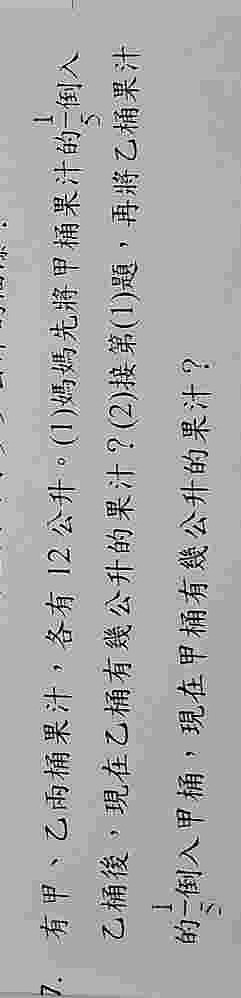 7. 有甲、乙兩桶果汁，各有 12 公升。(1)媽媽先將甲桶果汁的1/5倒入
乙桶後，現在乙桶有幾公升的果汁？(2)接第(1)題，再將乙桶果汁
的1/5倒入甲桶，現在甲桶有幾公升的果汁？